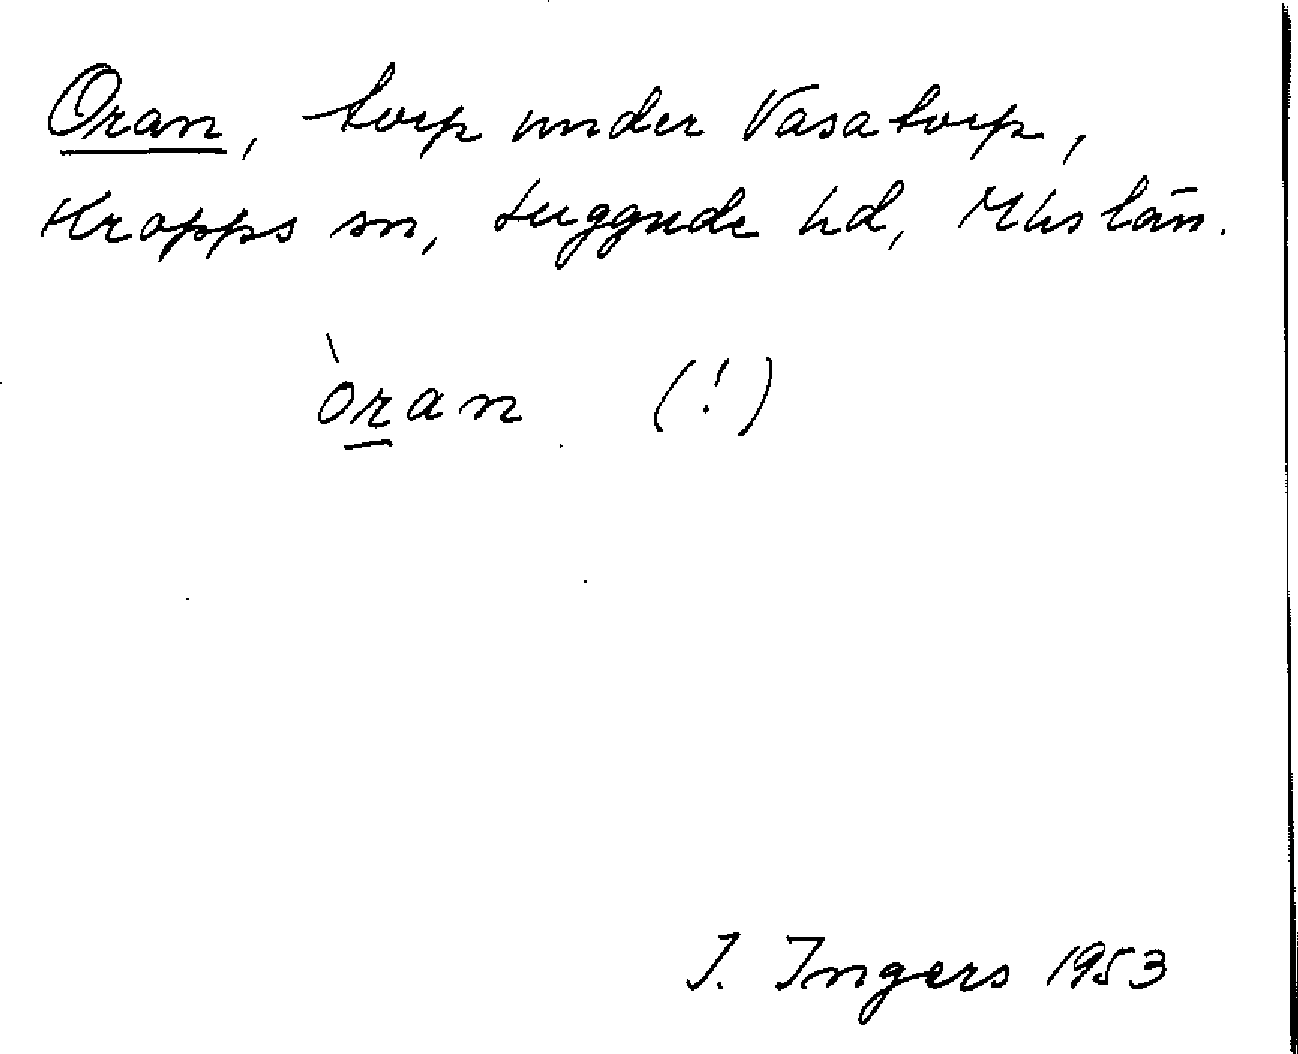 Oran, torp under Vasatorp,
Kropps sn, Luggude hd, Mhs län.
òran (!)
I. Ingers 1953